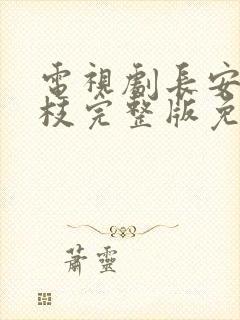 電視劇長安
枝完整版免
蕭靈